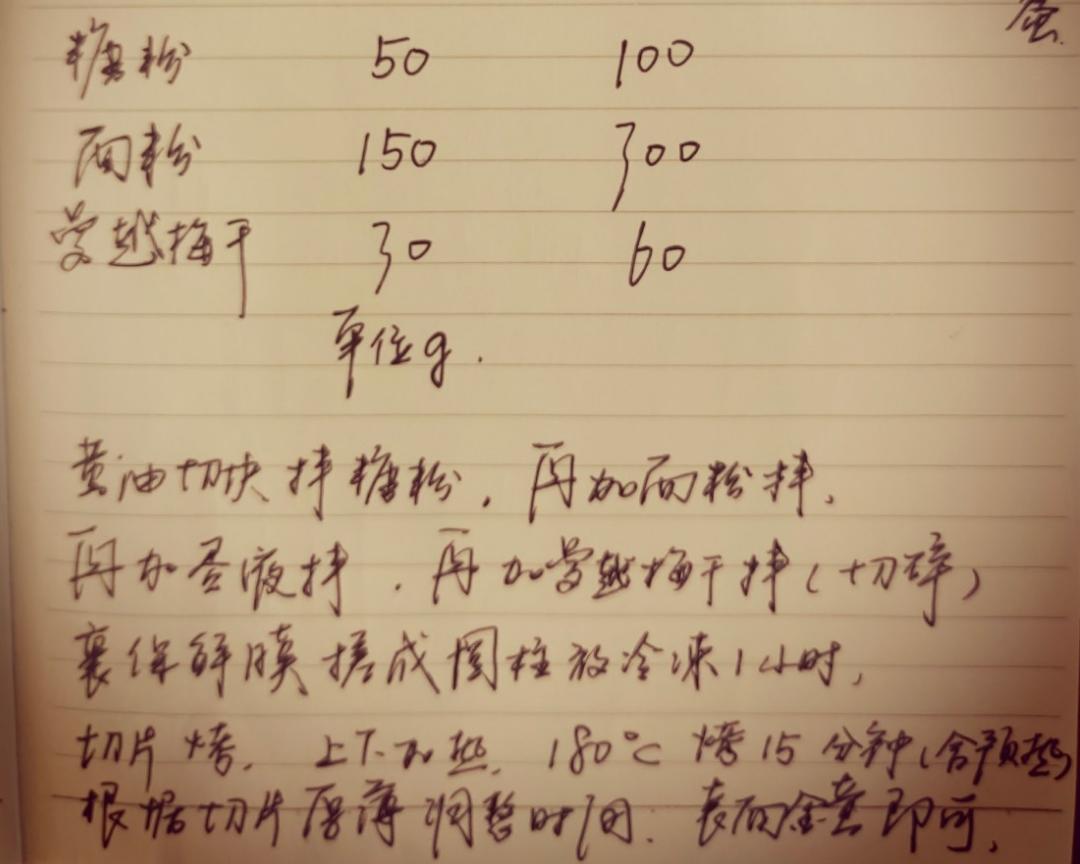 蛋
糖粉 50 100
面粉 150 300
曼越梅干 30 60
单位g.
黄油切块拌糖粉,再加面粉拌,
再加蛋液拌.再加曼越梅干拌(切碎)
裹保鲜膜搓成圆柱放冷冻1小时,
切片烤. 上下加热, 180℃ 烤15分钟(含预热)
根据切片厚薄调整时间. 表面金黄即可,